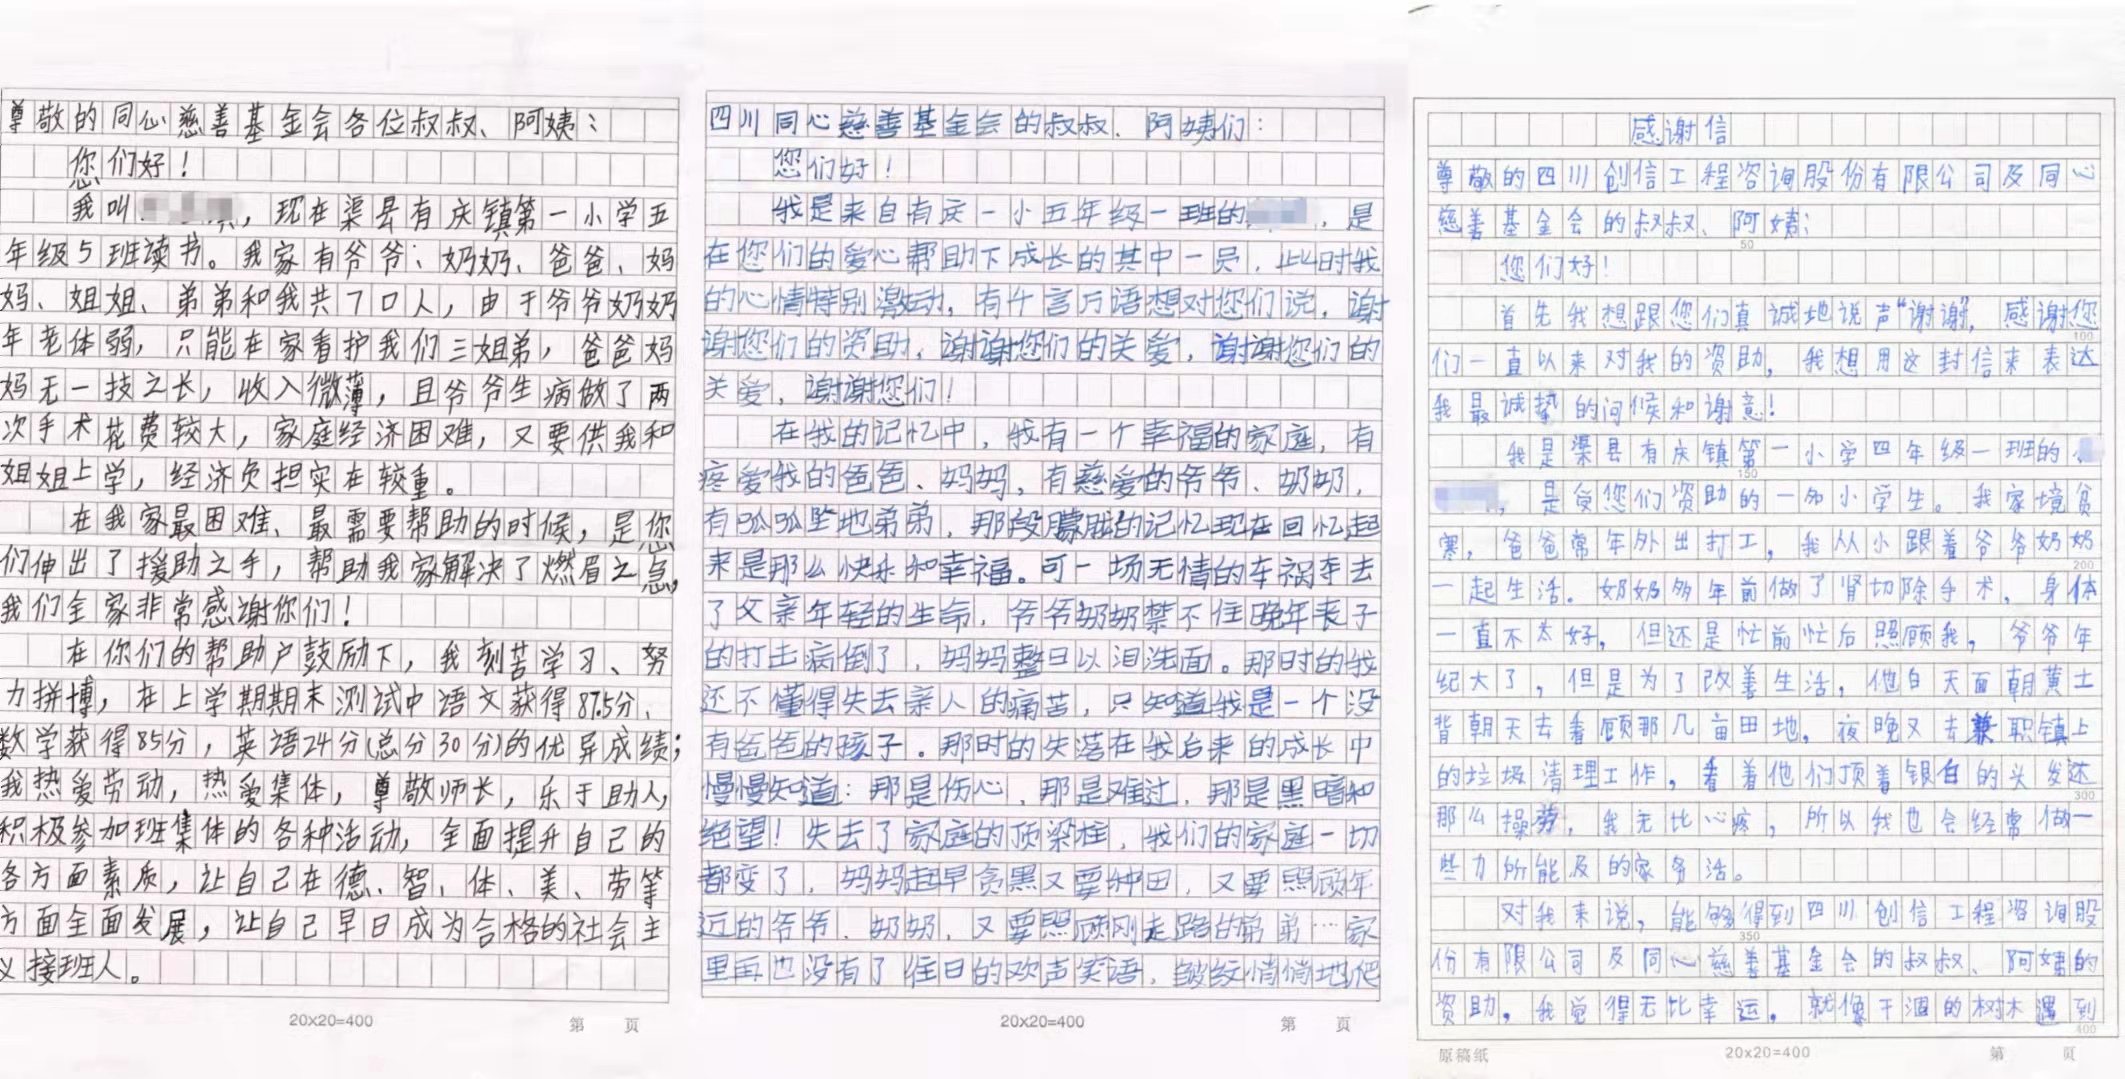 尊敬的同心慈善基金会各位叔叔、阿姨：
您们好！
我叫，现在渠县有庆镇第一小学五
年级5班读书。我家有爷爷、奶奶、爸爸、妈
妈、姐姐、弟弟和我共7口人，由于爷爷奶奶
年老体弱，只能在家看护我们三姐弟，爸爸妈
妈无一技之长，收入微薄，且爷爷生病做了两
次手术花费较大，家庭经济困难，又要供我和
姐姐上学，经济负担实在较重。
在我家最困难、最需要帮助的时候，是您
们伸出了援助之手，帮助我家解决了燃眉之急，
我们全家非常感谢你们！
在你们的帮助户鼓励下，我刻苦学习、努
力拼博，在上学期期末测试中语文获得87.5分、
数学获得85分，英语24分(总分30分)的优异成绩；
我热爱劳动，热爱集体，尊敬师长，乐于助人，
积极参加班集体的各种活动，全面提升自己的
各方面素质，让自己在德、智、体、美、劳等
方面全面发展，让自己早日成为合格的社会主
义接班人。
20x20=400
第 页
四川同心慈善基金会的叔叔、阿姨们：
您们好！
我是来自有庆一小五年级一班的，是
在您们的爱心帮助下成长的其中一员，此时我
的心情特别激动，有千言万语想对您们说，谢
谢您们的资助，谢谢您们的关爱，谢谢您们的
关爱，谢谢您们！
在我的记忆中，我有一个幸福的家庭，有
疼爱我的爸爸、妈妈，有慈爱的爷爷、奶奶，
有呱呱坠地弟弟，那段朦胧的记忆现在回忆起
来是那么快乐和幸福。可一场无情的车祸夺去
了父亲年轻的生命，爷爷奶奶禁不住晚年丧子
的打击病倒了，妈妈整日以泪洗面。那时的我
还不懂得失去亲人的痛苦，只知道我是一个没
有爸爸的孩子。那时的失落在我后来的成长中
慢慢知道：那是伤心，那是难过，那是黑暗和
绝望！失去了家庭的顶梁柱，我们的家庭一切
都变了，妈妈起早贪黑又要种田，又要照顾年
近的爷爷、奶奶，又要照顾刚走路的弟弟…家
里再也没有了往日的欢声笑语，皱纹悄悄地爬
20x20=400
第 页
感谢信
尊敬的四川创信工程咨询股份有限公司及同心
慈善基金会的叔叔、阿姨：
50
您们好！
首先我想跟您们真诚地说声“谢谢”，感谢您
100
们一直以来对我的资助，我想用这封信来表达
我最诚挚的问候和谢意！
我是渠县有庆镇第一小学四年级一班的
150
，是受您们资助的一名小学生。我家境贫
寒，爸爸常年外出打工，我从小跟着爷爷奶奶
200
一起生活。奶奶多年前做了肾切除手术，身体
一直不太好，但还是忙前忙后照顾我，爷爷年
纪大了，但是为了改善生活，他白天面朝黄土
背朝天去看顾那几亩田地，夜晚又去兼职镇上
的垃圾清理工作，看着他们顶着银白的头发还
300
那么操劳，我无比心疼，所以我也会经常做一
些力所能及的家务活。
对我来说，能够得到四川创信工程咨询股
350
份有限公司及同心慈善基金会的叔叔、阿姨的
资助，我觉得无比幸运，就像干涸的树木遇到
400
原稿纸
20x20=400
第 页